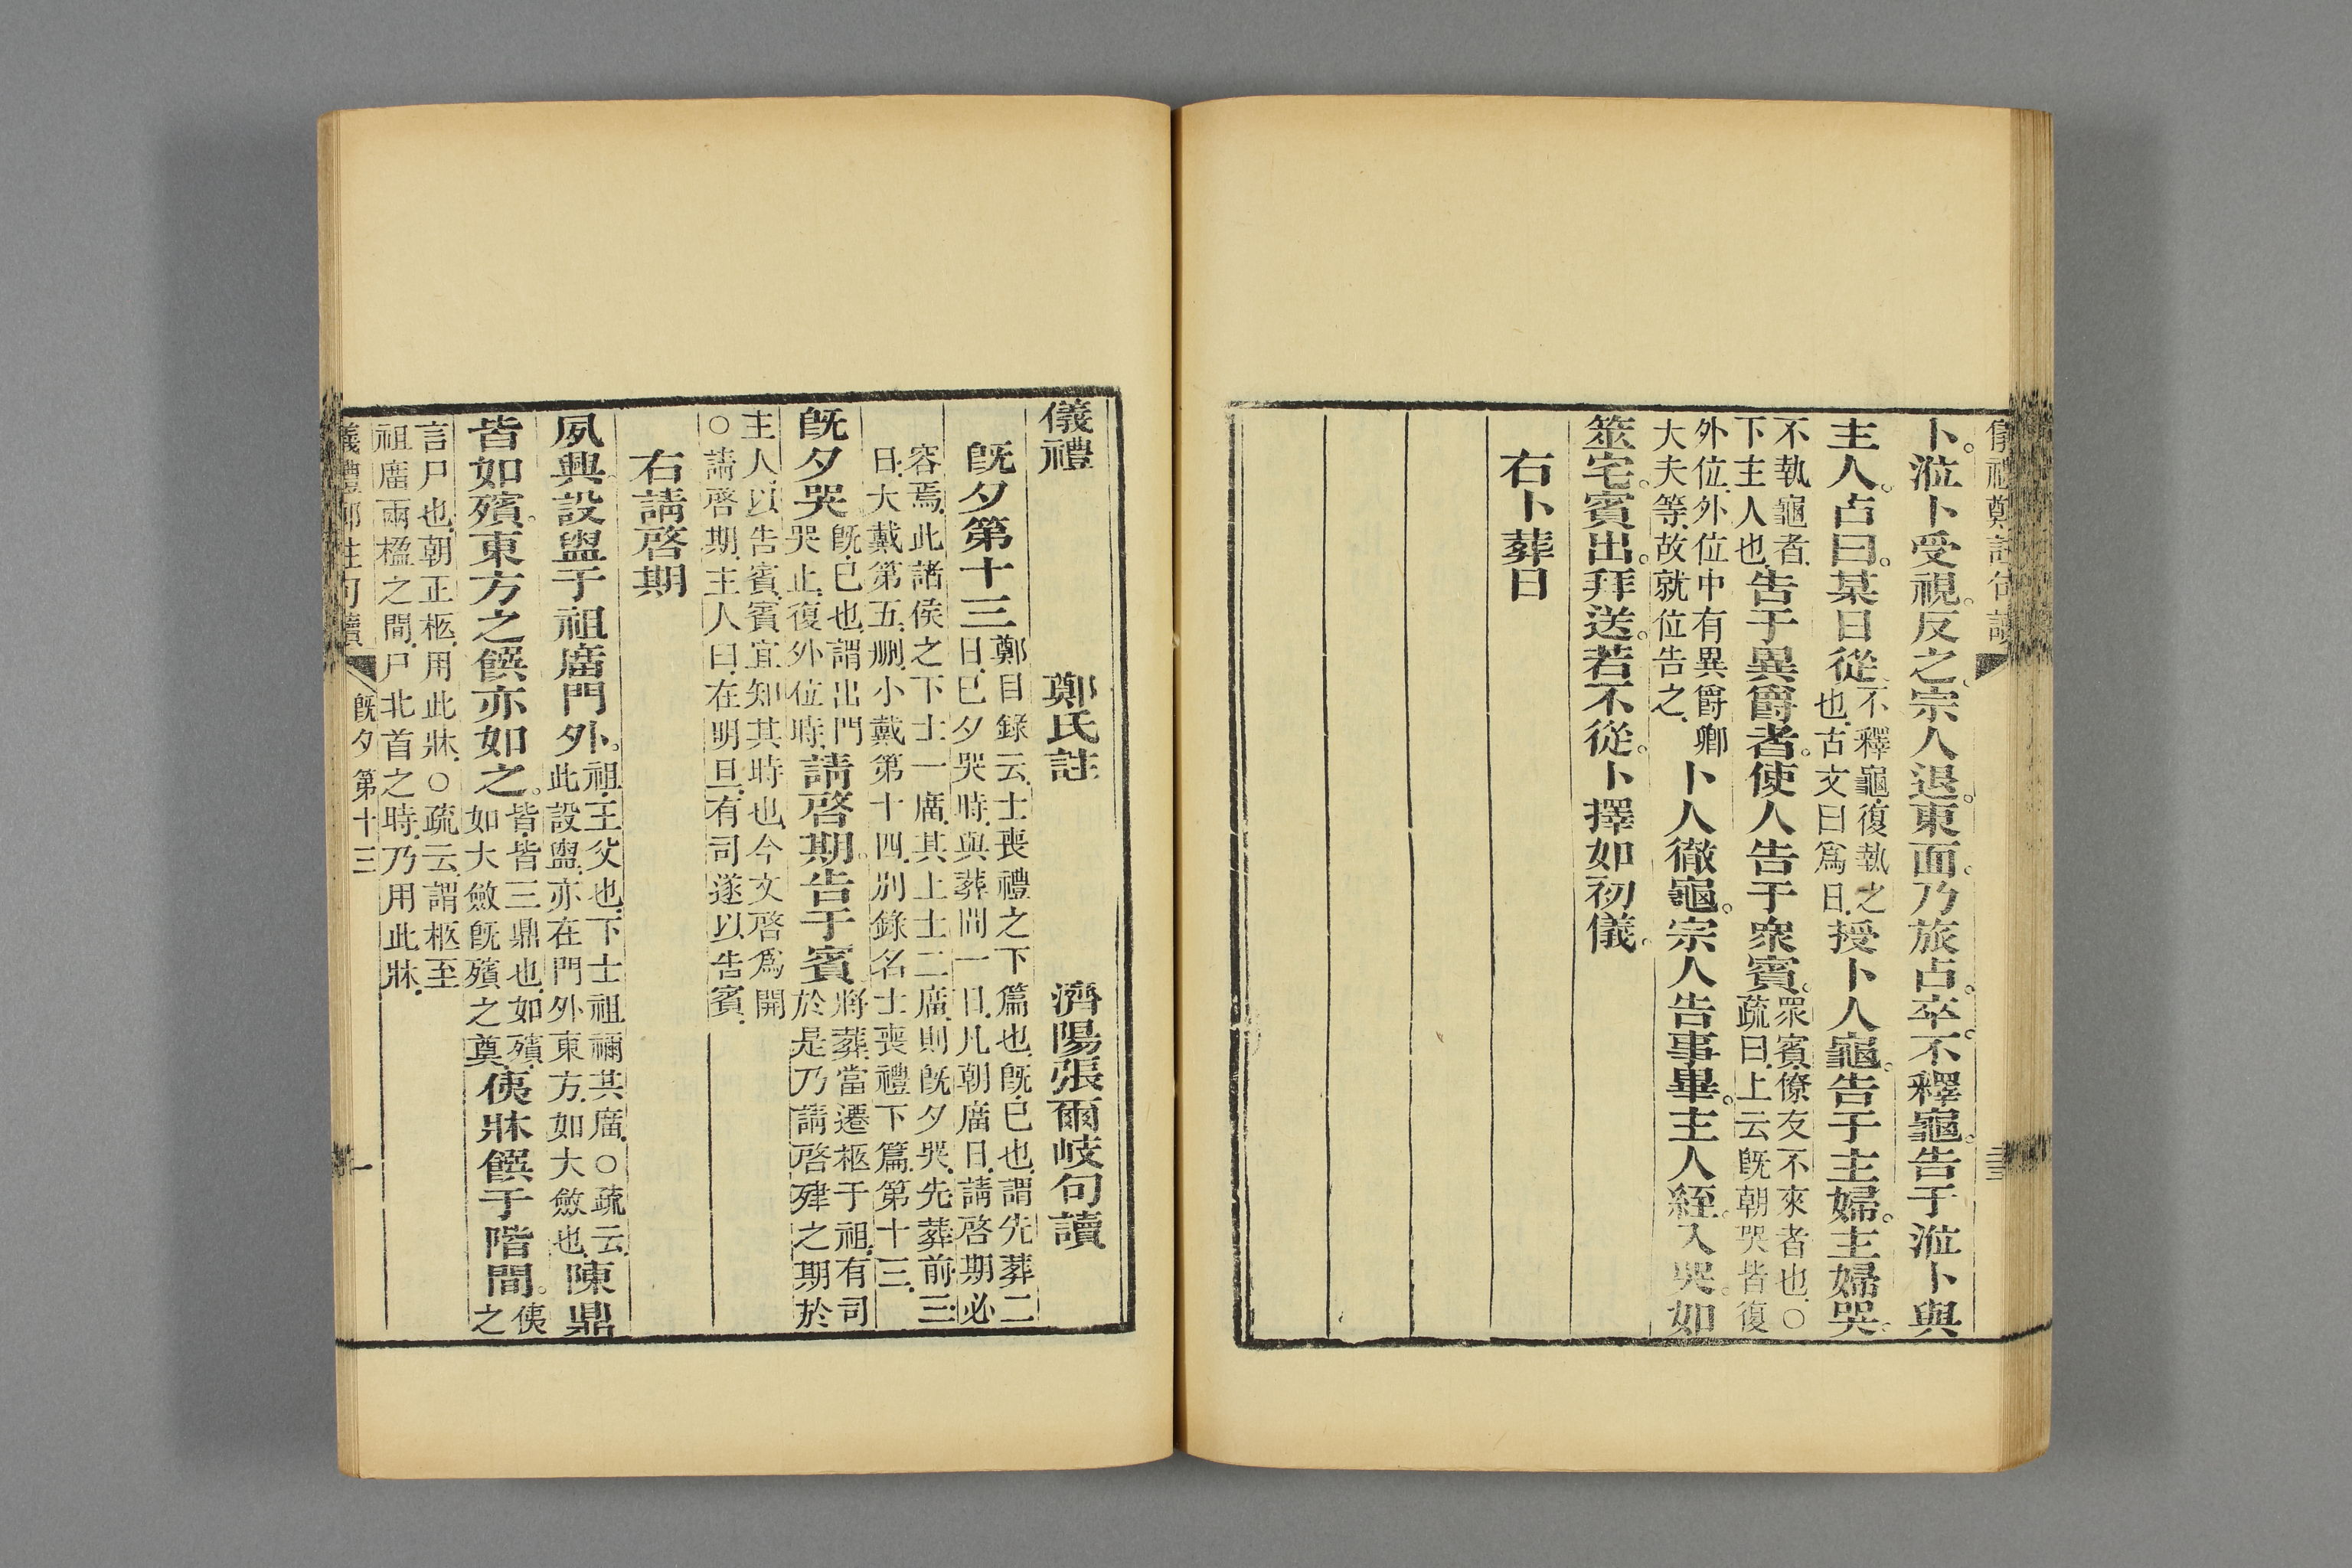 儀禮鄭註句讀
卜。涖卜受視。反之。宗人退。東面。乃旅占。卒。不釋龜。告于涖卜與
主人。占曰。某日從。不釋龜.復執之也.古文曰爲日.授卜人龜。告于主婦。主婦哭。
不執龜者.下主人也.告于異爵者。使人告于衆賓。眾賓.僚友不來者也.○疏曰.上云旣朝哭皆復
外位.外位中有異爵卿大夫等.故就位告之.卜人徹龜。宗人告事畢。主人絰。入哭。如
筮宅。賓出。拜送。若不從。卜擇如初儀。
右卜葬日
儀禮 鄭氏註 濟陽張爾岐句讀
旣夕第十三鄭目錄云.士喪禮之下篇也.旣.已也.謂先葬二日.已夕哭時.與葬間一日.凡朝廟日.請啓期必
容焉.此諸侯之下士一廟.其上士二廟.則旣夕哭.先葬前三日.大戴第五.刪.小戴第十四.別錄名士喪禮下篇.第十三.
旣夕哭旣.已也.謂出門哭止.復外位時.請啓期。告于賓將葬.當遷柩于祖.有司於是乃請啓肂之期於
主人.以告賓.賓宜知其時也.今文啓爲開○請啓期.主人曰.在明旦.有司遂以告賓.
右請啓期
夙興。設盥于祖廟門外。祖.王父也.下士祖禰共廟.○疏云.此設盥.亦在門外東方.如大斂也.陳鼎
皆如殯。東方之饌亦如之。皆.皆三鼎也.如殯.如大斂旣殯之奠.侇牀饌于階間。侇之
言尸也.朝正柩.用此牀.○疏云.謂柩至祖廟兩楹之間.尸北首之時.乃用此牀.
儀禮鄭註句讀 旣夕第十三 一